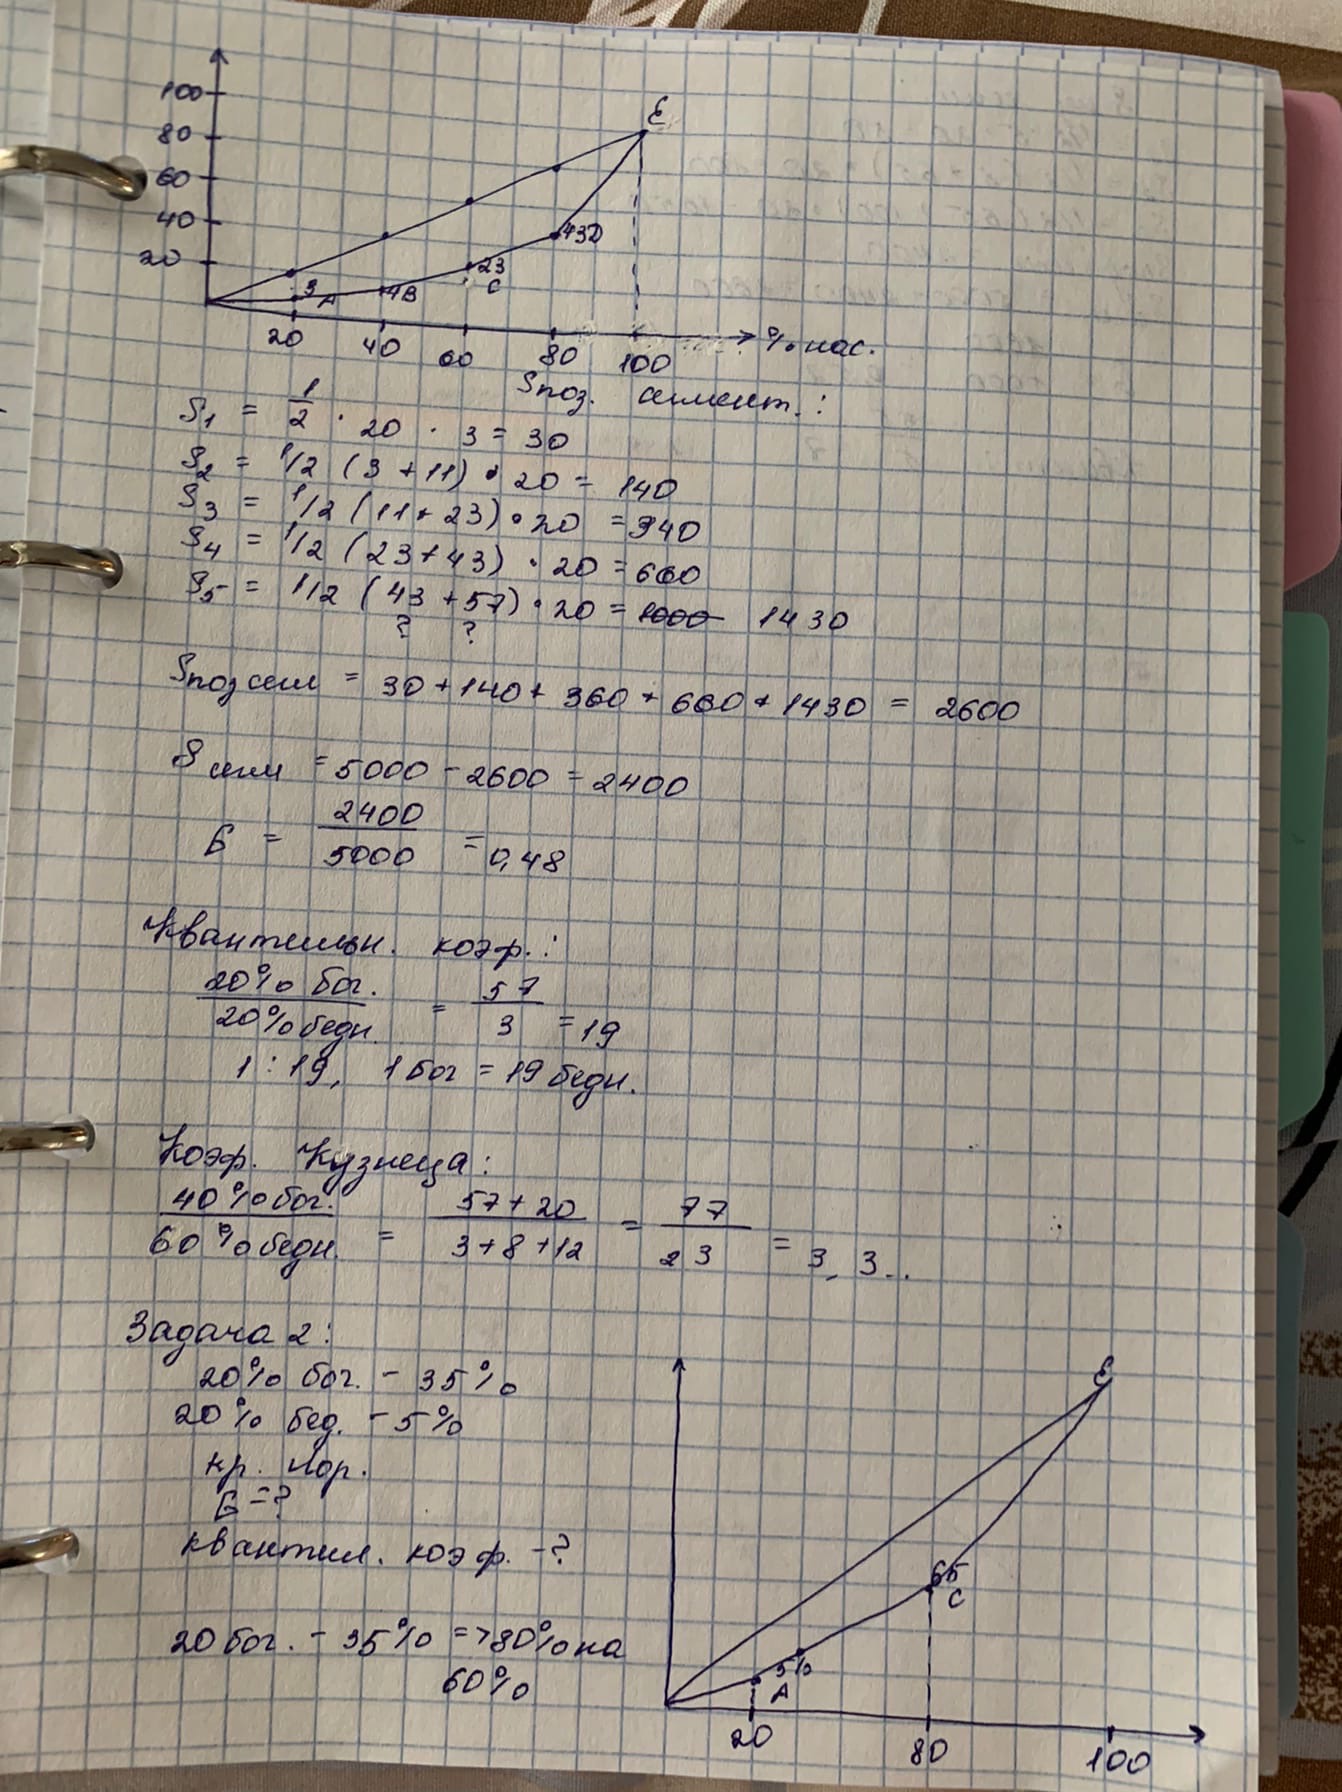 100
80
60
40
20
E
3
A
4B
23
C
43D
20 40 60 80 100 % нас.
Sпоз. сегмент.:
S1 = 1/2 · 20 · 3 = 30
S2 = 1/2 (3 + 11) · 20 = 140
S3 = 1/2 (11 + 23) · 20 = 340
S4 = 1/2 (23 + 43) · 20 = 660
S5 = 1/2 (43 + 57) · 20 = 1000 1430
? ?
Sпоз сегм = 30 + 140 + 360 + 660 + 1430 = 2600
S сегм = 5000 - 2600 = 2400
G = 2400/5000 = 0,48
Квантильн. коэф.:
20% бог./20% бедн. = 57/3 = 19
1 : 19, 1 бог = 19 бедн.
Коэф. Кузнеца:
40% бог./60% бедн. = 57 + 20/3 + 8 + 12 = 77/23 = 3, 3..
Задача 2:
20% бог. - 35%
20% бед. - 5%
кр. Лор.
G = ?
квантил. коэф. - ?
20 бог. - 35% => 80% на
60%
E
65
C
5%
A
20 80 100